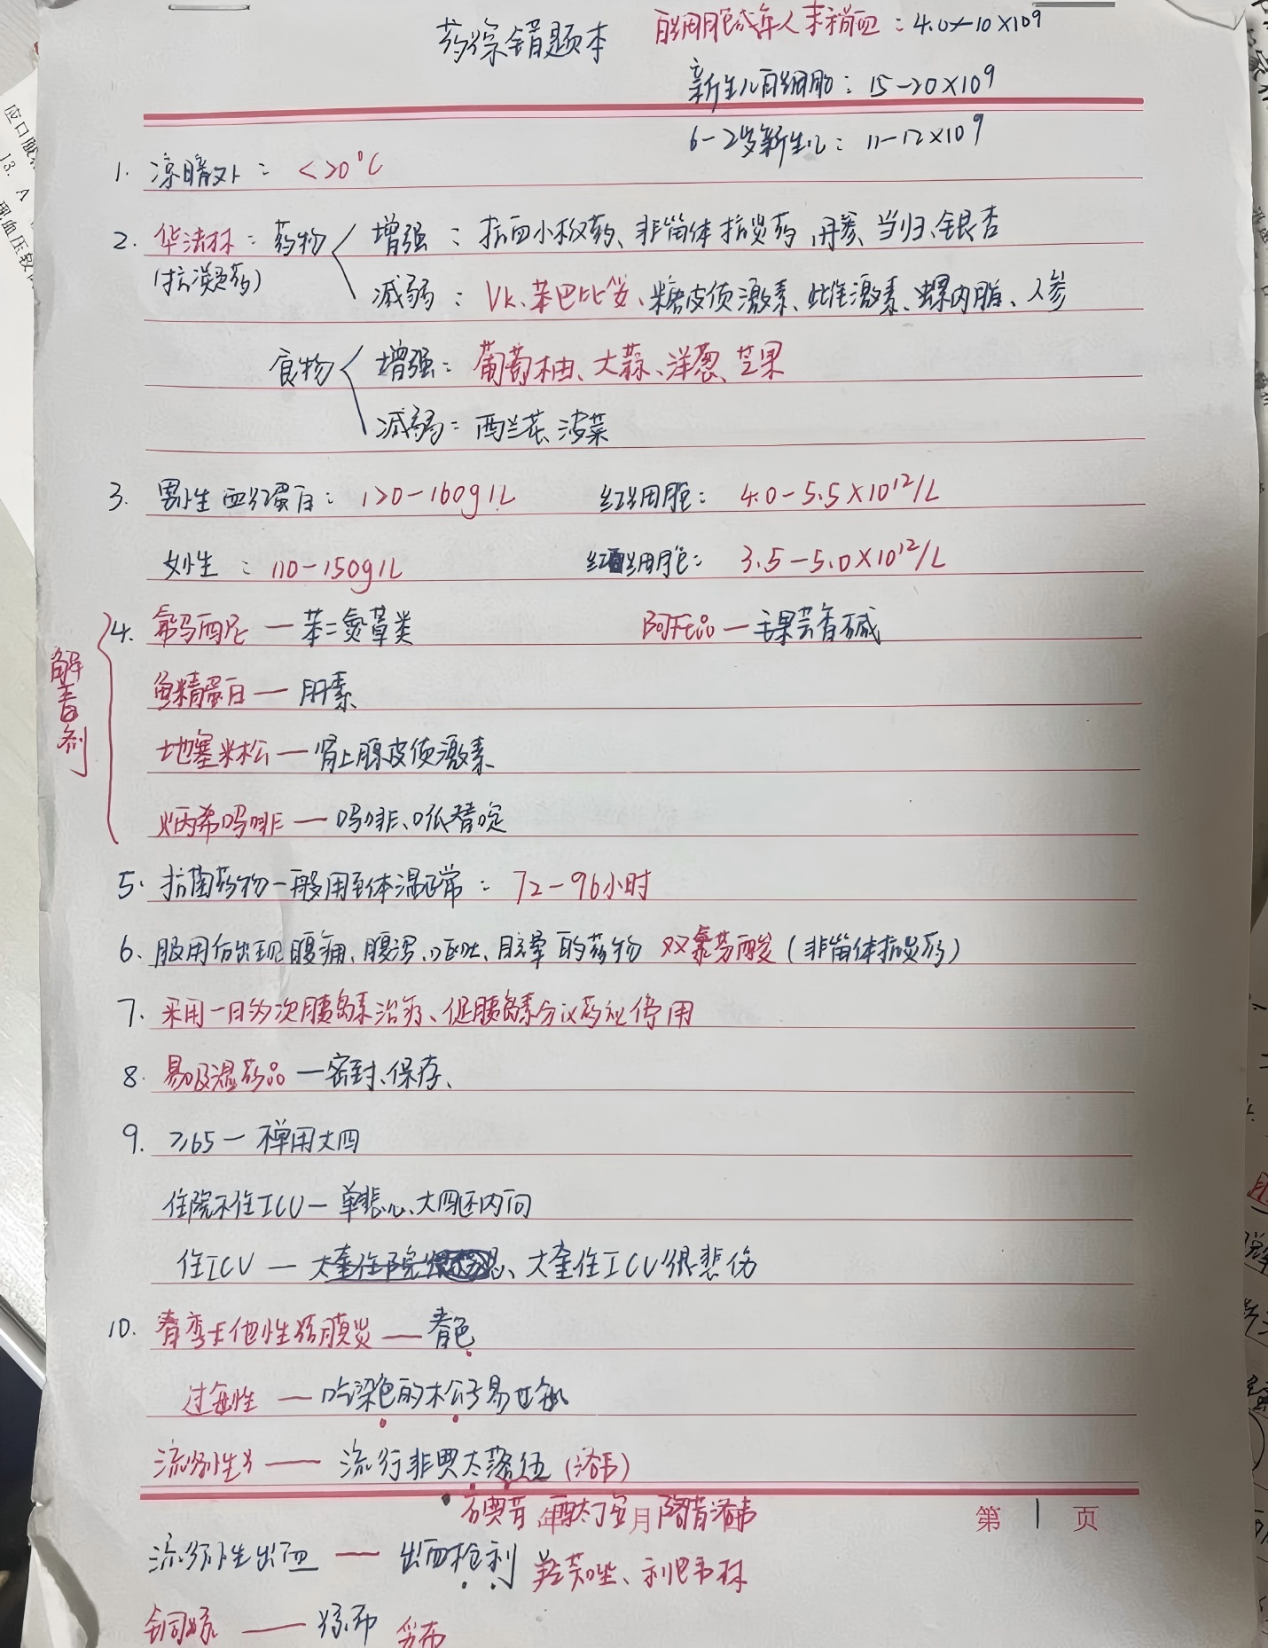 药综错题本 白细胞成年人末梢血：4.0-10×10⁹
新生儿白细胞：15-20×10⁹
6-2岁新生儿：11-12×10⁹
1. 凉暗处：<20°C
2. 华法林：药物 增强：抗血小板药、非甾体抗炎药、丹参、当归、银杏
(抗凝药) 减弱：Vk、苯巴比妥、糖皮质激素、雌激素、螺内酯、人参
食物 增强：葡萄柚、大蒜、洋葱、芒果
减弱：西兰花、波菜
3. 男性血红蛋白：120-160g/L 红细胞：4.0-5.5×10¹²/L
女性：110-150g/L 红细胞：3.5-5.0×10¹²/L
解毒剂
4. 氟马西尼—苯二氮䓬类 阿托品—毛果芸香碱
鱼精蛋白—肝素
地塞米松—肾上腺皮质激素
烯丙吗啡—吗啡、哌替啶
5. 抗菌药物一般用至体温正常：72-96小时
6. 服用后出现腹痛、腹泻、呕吐、眩晕的药物 双氯芬酸(非甾体抗炎药)
7. 采用一日多次胰岛素治疗、促胰岛素分泌药应停用
8. 易吸湿药品—密封、保存、
9. ≥65—禅用大四
住院不住ICU—单悲心、大四还内向
住ICU— 、大奎住ICU很悲伤
10. 春季卡他性结膜炎—春色
过敏性—吃染色的松子易过敏
流行性 — 流行非典太落伍(洛韦)
年 月 阿昔洛韦 第 1 页
流行性出血—出血抢利 羟苄唑、利巴韦林
铜绿—绿布 多布